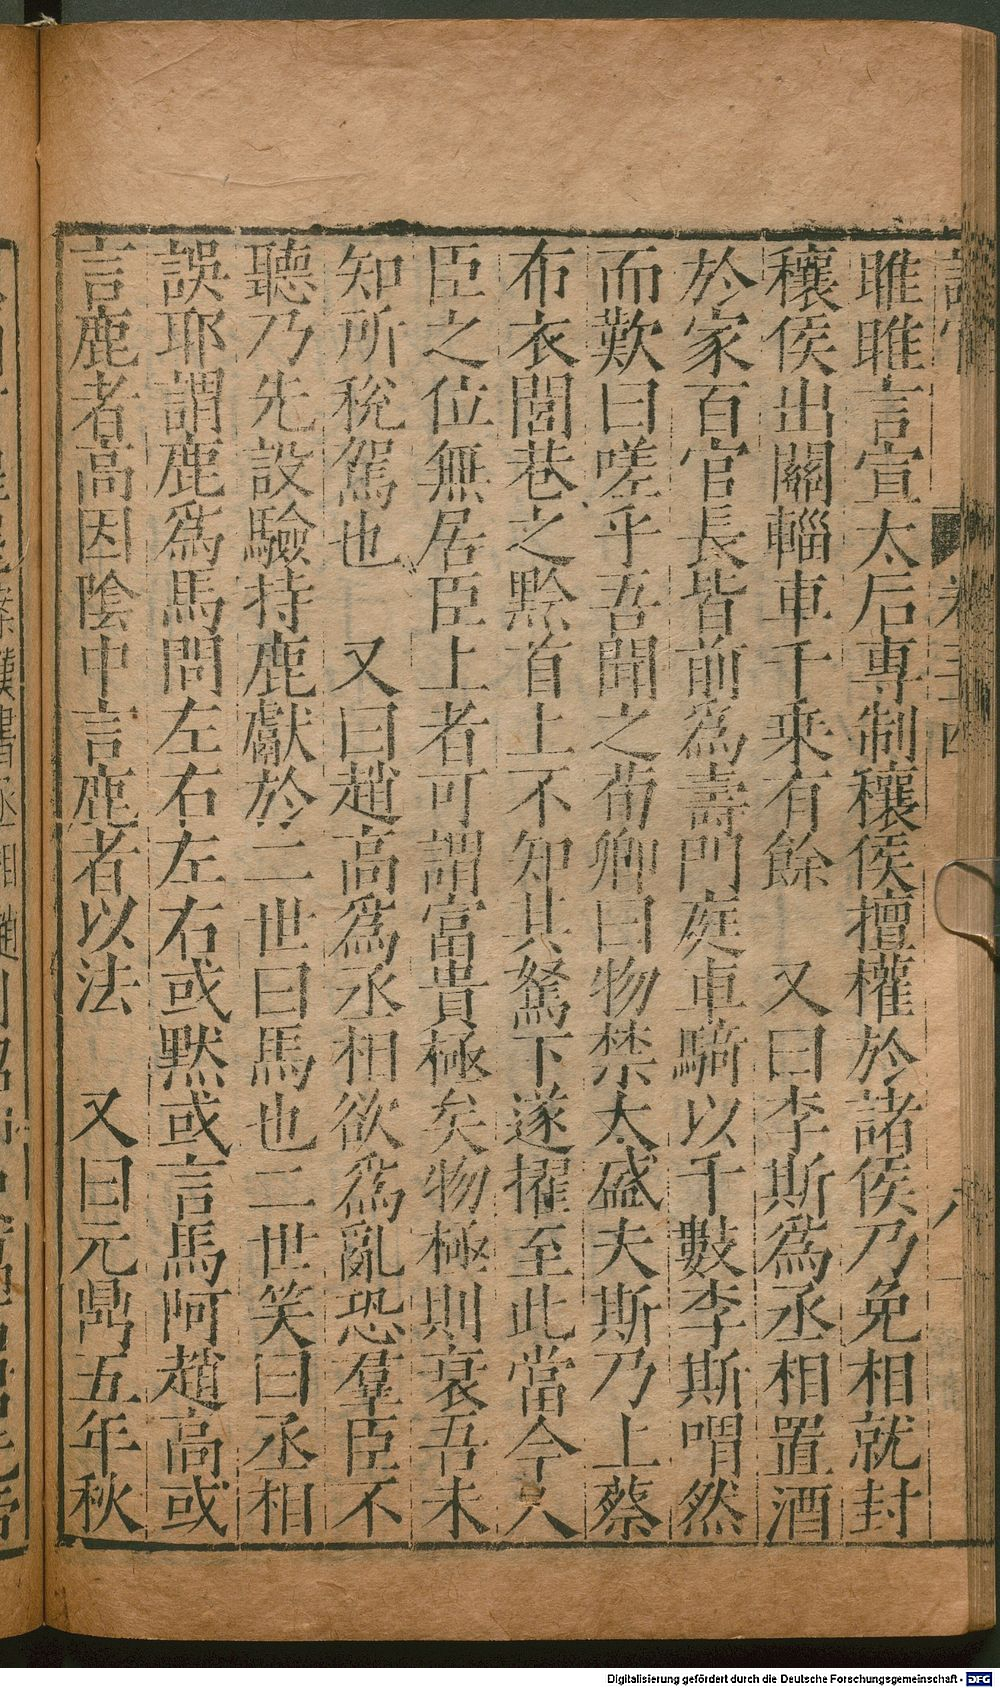 雎雎言宣太后專制穰侯擅權於諸侯乃免相就封
穰侯出關輜車千乘有餘　又曰李斯爲丞相置酒
於家百官長皆前爲壽門庭車騎以千數李斯喟然
而歎曰嗟乎吾聞之荀卿曰物禁太盛夫斯乃上蔡
布衣閭巷之黔首上不知其駑下遂擢至此當今人
臣之位無居臣上者可謂富貴極矣物極則衰吾未
知所稅駕也　又曰趙高爲丞相欲爲亂恐羣臣不
聽乃先設驗持鹿獻於二世曰馬也二世笑曰丞相
誤耶謂鹿爲馬問左右左右或默或言馬阿趙高或
言鹿者高因陰中言鹿者以法　又曰元鼎五年秋
Digitalisierung gefördert durch die Deutsche Forschungsgemeinschaft - DFG